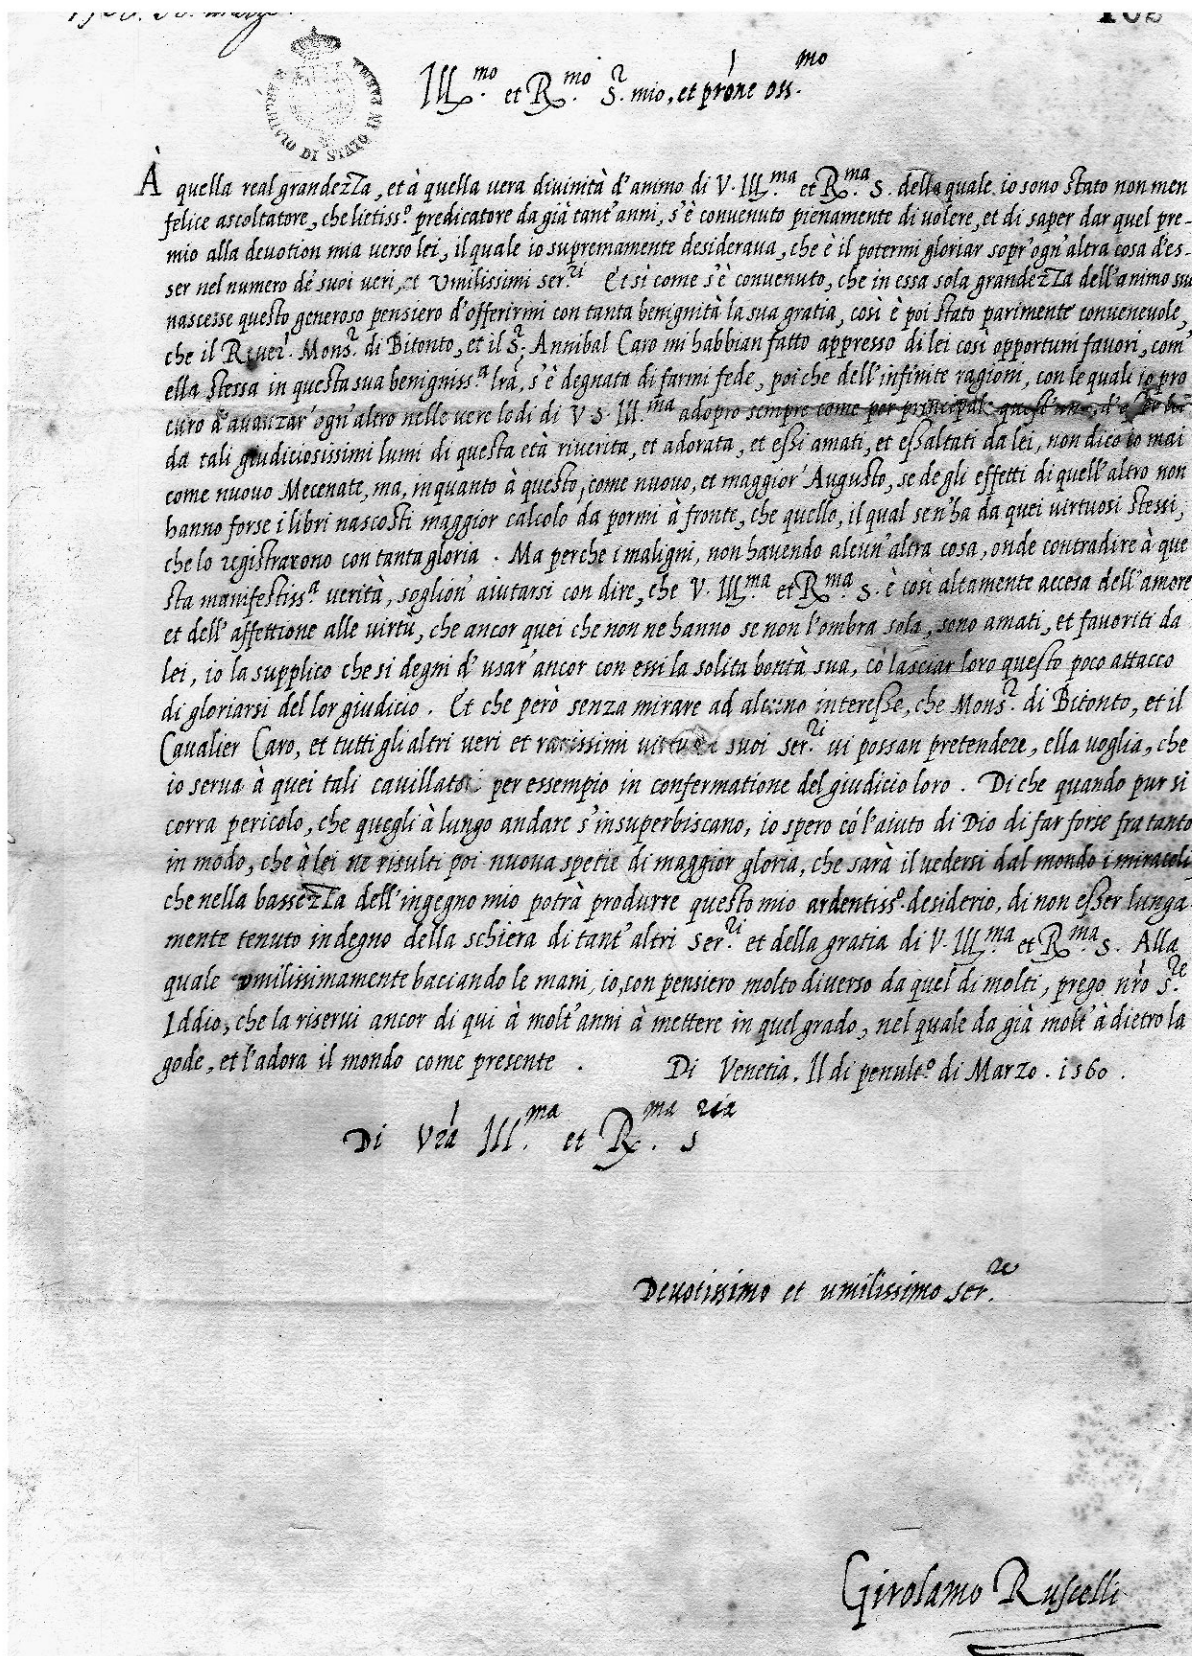 Ill.mo et R.mo S.r mio, et pr'one oss.mo
ARCHIVIO DI STATO IN PARMA
À quella real grandezza, et à quella vera divinità d'animo di V. Ill.ma et R.ma S. della quale io sono stato non men
felice ascoltatore, che lietiss.o predicatore da già tant'anni, s'è convenuto pienamente di volere, et di saper dar quel pre-
mio alla devotion mia verso lei, il quale io supremamente desiderava, che è il potermi gloriar sopr'ogn'altra cosa d'es-
ser nel numero de' suoi veri, et umilissimi ser.ri Et sì come s'è convenuto, che in essa sola grandezza dell'animo suo
nascesse questo generoso pensiero d'offerirmi con tanta benignità la sua gratia, così è poi stato parimente convenevole,
che il Rever. Mons.r di Bitonto, et il S.r Annibal Caro mi habbian fatto appresso di lei così opportuni favori, com'
ella stessa in questa sua benigniss.a lr'a, s'è degnata di farmi fede, poi che dell'infinite ragioni, con le quali io pro
curo d'avanzar' ogn'altro nelle vere lodi di V. S. Ill.ma adopro sempre come per principal
da tali giudiciosissimi lumi di questa età riverita, et adorata, et essi amati, et essaltati da lei, non dico io mai
come nuovo Mecenate, ma, in quanto à questo, come nuovo, et maggior' Augusto, se degli effetti di quell'altro non
hanno forse i libri nascosti maggior calcolo da pormi à fronte, che quello, il qual sen'ha da quei virtuosi stessi,
che lo registrarono con tanta gloria. Ma perche i maligni, non havendo alcun'altra cosa, onde contradire à que
sta manifestiss.a verità, soglion' aiutarsi con dire, che V. Ill.ma et R.ma S. è così altamente accesa dell'amore
et dell'affettione alle virtù, che ancor quei che non ne hanno se non l'ombra sola, sono amati, et favoriti da
lei, io la supplico che si degni d'usar' ancor con essi la solita bontà sua, co' lasciar loro questo poco attacco
di gloriarsi del lor giudicio. Et che però senza mirare ad alcuno interesse, che Mons.r di Bitonto, et il
Cavalier Caro, et tutti gli altri veri et rarissimi virtuosi suoi ser.ri vi possan pretendere, ella voglia, che
io serva à quei tali cavillatori per essempio in confermatione del giudicio loro. Di che quando pur si
corra pericolo, che quegli à lungo andare s'insuperbiscano, io spero co' l'aiuto di Dio di far forse fra tanto
in modo, che à lei ne risulti poi nuova spetie di maggior gloria, che sarà il vedersi dal mondo i miracoli,
che nella bassezza dell'ingegno mio potrà produrre questo mio ardentiss.o desiderio, di non esser lunga-
mente tenuto indegno della schiera di tant'altri ser.ri et della gratia di V. Ill.ma et R.ma S. Alla
quale umilissimamente baciando le mani, io, con pensiero molto diverso da quel di molti, prego nr'o S.re
Iddio, che la riservi ancor di qui à molt'anni à mettere in quel grado, nel quale da già molt'à dietro la
gode, et l'adora il mondo come presente. Di Venetia. Il dì penult.o di Marzo. 1560.
Di Vr'a Ill.ma et R.ma S.ria
Devotissimo et umilissimo ser.re
Girolamo Ruscelli